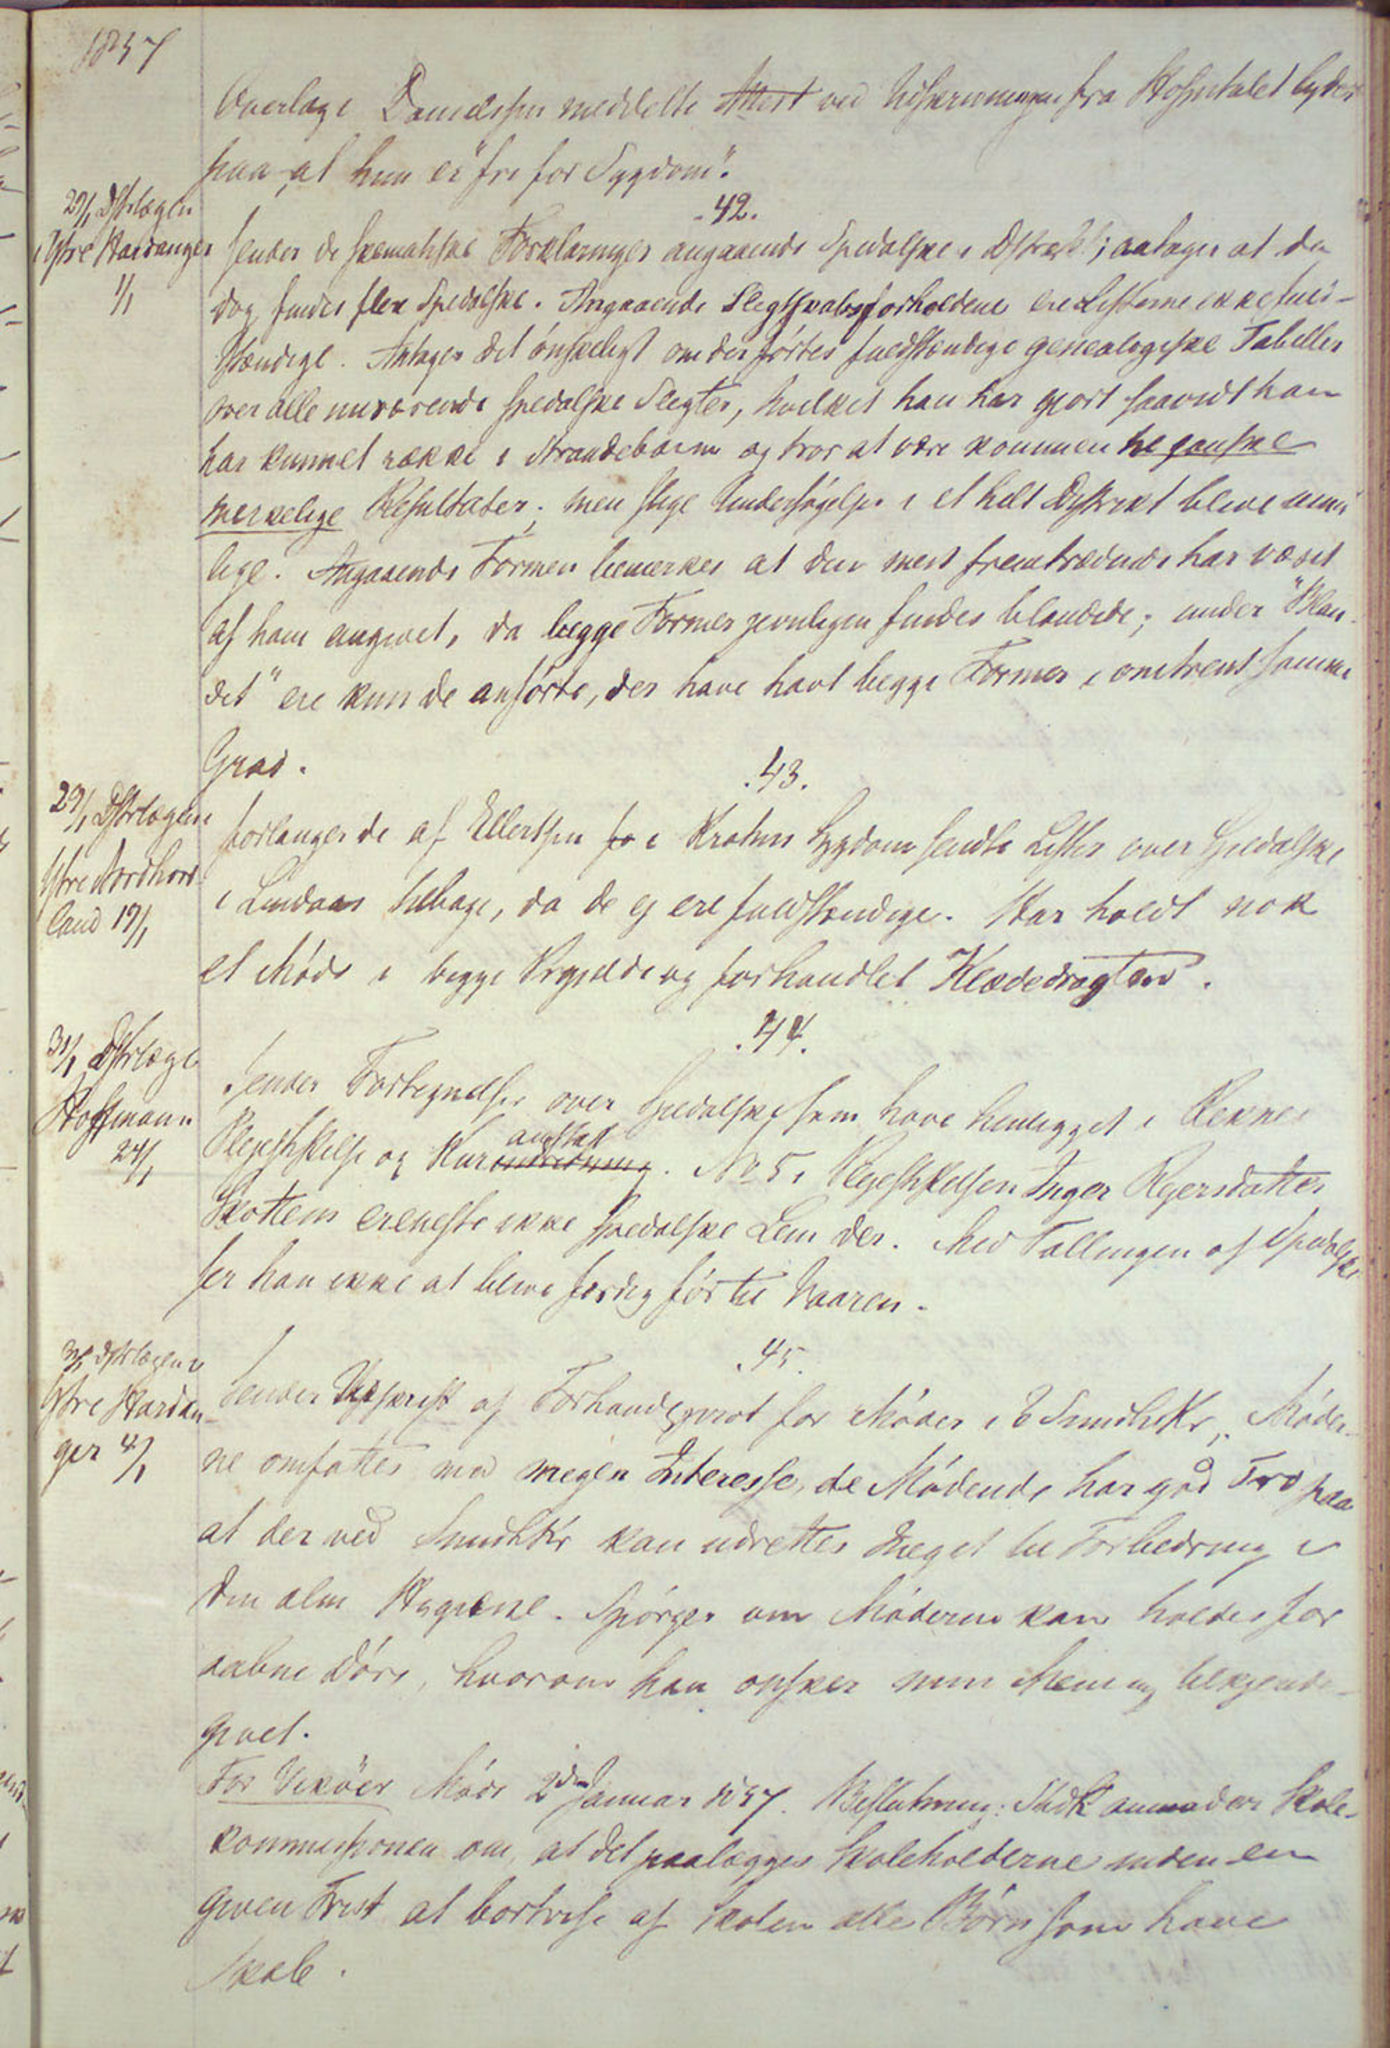 1857
Overlæge Danielssen meddelte Attest ved Udskrivningen fra Hospitalet lyder
paa, at hun er "fri for Sygdom".
42.
29/1 Dstrlægen
i Ytre Hardanger
1/1
Sender de skematiske Forklaringer angaaende Spedalske i Distrikt; antager at der
dog findes flere Spedalske. Angaaende Slegtskabsforholdene ere Listerne ikke fuld-
stændige. Antager det ønskeligt om der førtes fuldstændige genealogiske Tabeller
over alle nuværende spedalske Slegter, hvilket han har gjort saavidt han
har kunnet række i Strandebarm og tror at være kommen til ganske
merkelige Resultater; men slige Undersøgelser i et helt Distrikt bleve umu
lige. Angaaende Formen bemerkes at den mest fremtrædende har været
af ham angivet, da begge Former jevnligen findes blandede; under "Blan-
det" ere kun de anførte, der have havt begge Former i omtrent samme
Grad.
43.
29/1 Dstrlægen
Ytre Nordhord
land 19/1
forlanger de af Ellertsen fo i Kroken Sygdom sendte Lister over Spedalske
i Lindaas tilbage, da de ej ere fuldstændige. Har holdt nok
et Møde i begge Prgjeld og forhandlet Klædedragten.
44.
31/1 Dstrlæge
Hoffmann
24/1
Sender Fortegnelse over Spedalske som have henligget i Reknes
Plejestiftelse og Kurindretning anstalt. No 5 i Plejestiftelsen Inger Rejersdatter
Skottem er eneste ikke spedalske Lem der. Med Tællingen af Spedalske
ser han ikke at blive færdig før til Vaaren.
45.
31/1 Dstrlægen i
Ytre Hardan
ger 4/1
Sender Udskrift af Forhandlsprot for Møder i 2 SundhKr, Møder-
ne omfattes med megen Interesse, de Mødende har god Tro paa
at der ved SundhKr kan udrettes meget til Forbedring i
den alm Hygiene. Spørger om Møderne kan holdes for
aabne Døre, hvorom han ønsker min Mening tilkjende-
givet.
For Vikøer Møde 2den Januar 1857. Beslutning: SudK anmoder Skole-
kommissionen om, at det paalægges Skoleholderne inden en
given Frist at bortvise af Skolen alle Børn som have
Skab.